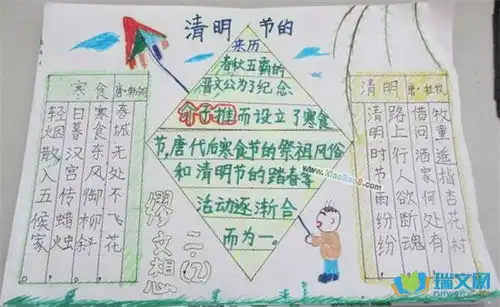 清明节的
来历
春秋五霸的
晋文公为了纪念
介子推而设立了寒食
节,唐代后寒食节的祭祖风俗
和清明节的踏春等
活动逐渐合
而为一。
寒食 唐·韩翃
春城无处不飞花
寒食东风御柳斜
日暮汉宫传蜡烛
轻烟散入五候家
清明 唐·杜牧
清明时节雨纷纷
路上行人欲断魂
借问酒家何处有
牧童遥指杏花村
二(2)
瑞文网